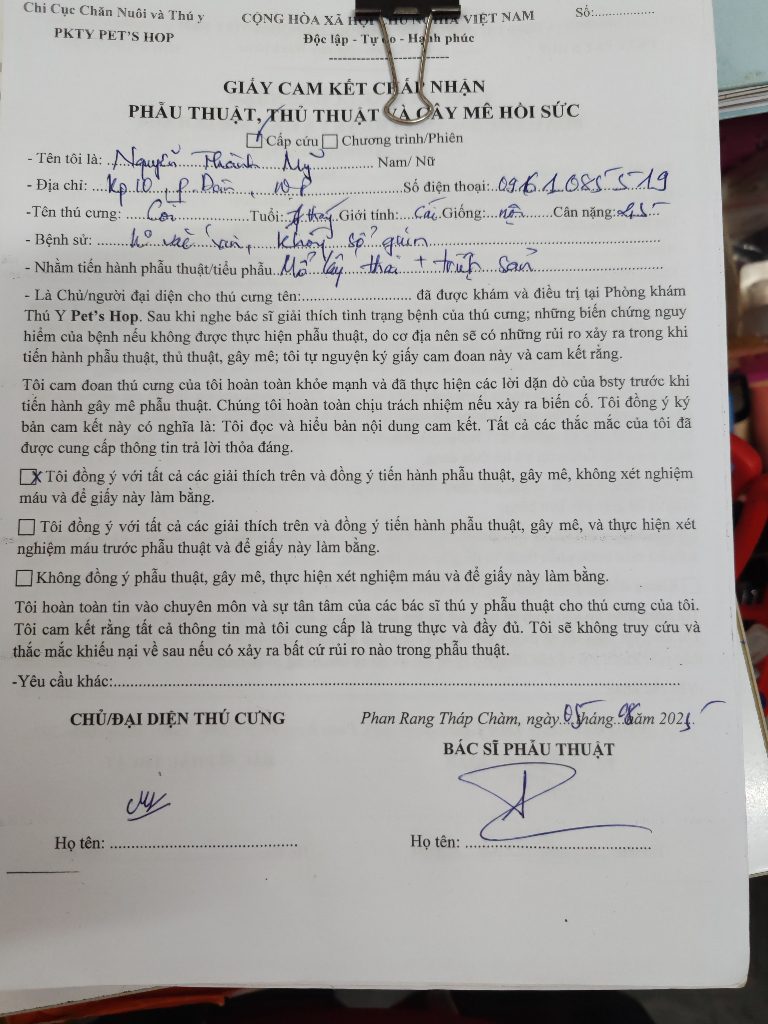 Chi Cục Chăn Nuôi và Thú y
CỘNG HÒA XÃ HỘI CHỦ NGHĨA VIỆT NAM
Số:
PKTY PET'S HOP
Độc lập - Tự do - Hạnh phúc
GIẤY CAM KẾT CHẤP NHẬN
PHẪU THUẬT, THỦ THUẬT VÀ GÂY MÊ HỒI SỨC
Cấp cứu Chương trình/Phiên
- Tên tôi là: Nguyễn Thành Mỹ Nam/ Nữ
- Địa chỉ: Kp 10, P. Số điện thoại: 0961085519
-Tên thú cưng: Còi Tuổi: Giới tính: Cái Giống: Cân nặng:
- Bệnh sử: không sổ giun
- Nhằm tiến hành phẫu thuật/tiểu phẫu Mổ lấy thai + triệt sản
- Là Chủ/người đại diện cho thú cưng tên: đã được khám và điều trị tại Phòng khám
Thú Y Pet's Hop. Sau khi nghe bác sĩ giải thích tình trạng bệnh của thú cưng; những biến chứng nguy
hiểm của bệnh nếu không được thực hiện phẫu thuật, do cơ địa nên sẽ có những rủi ro xảy ra trong khi
tiến hành phẫu thuật, thủ thuật, gây mê; tôi tự nguyện ký giấy cam đoan này và cam kết rằng.
Tôi cam đoan thú cưng của tôi hoàn toàn khỏe mạnh và đã thực hiện các lời dặn dò của bsty trước khi
tiến hành gây mê phẫu thuật. Chúng tôi hoàn toàn chịu trách nhiệm nếu xảy ra biến cố. Tôi đồng ý ký
bản cam kết này có nghĩa là: Tôi đọc và hiểu bản nội dung cam kết. Tất cả các thắc mắc của tôi đã
được cung cấp thông tin trả lời thỏa đáng.
X Tôi đồng ý với tất cả các giải thích trên và đồng ý tiến hành phẫu thuật, gây mê, không xét nghiệm
máu và để giấy này làm bằng.
Tôi đồng ý với tất cả các giải thích trên và đồng ý tiến hành phẫu thuật, gây mê, và thực hiện xét
nghiệm máu trước phẫu thuật và để giấy này làm bằng.
Không đồng ý phẫu thuật, gây mê, thực hiện xét nghiệm máu và để giấy này làm bằng.
Tôi hoàn toàn tin vào chuyên môn và sự tân tâm của các bác sĩ thú y phẫu thuật cho thú cưng của tôi.
Tôi cam kết rằng tất cả thông tin mà tôi cung cấp là trung thực và đầy đủ. Tôi sẽ không truy cứu và
thắc mắc khiếu nại về sau nếu có xảy ra bất cứ rủi ro nào trong phẫu thuật.
-Yêu cầu khác:
CHỦ/ĐẠI DIỆN THÚ CƯNG
Phan Rang Tháp Chàm, ngày 05 tháng 08 năm 2025
BÁC SĨ PHẪU THUẬT
Họ tên:
Họ tên: